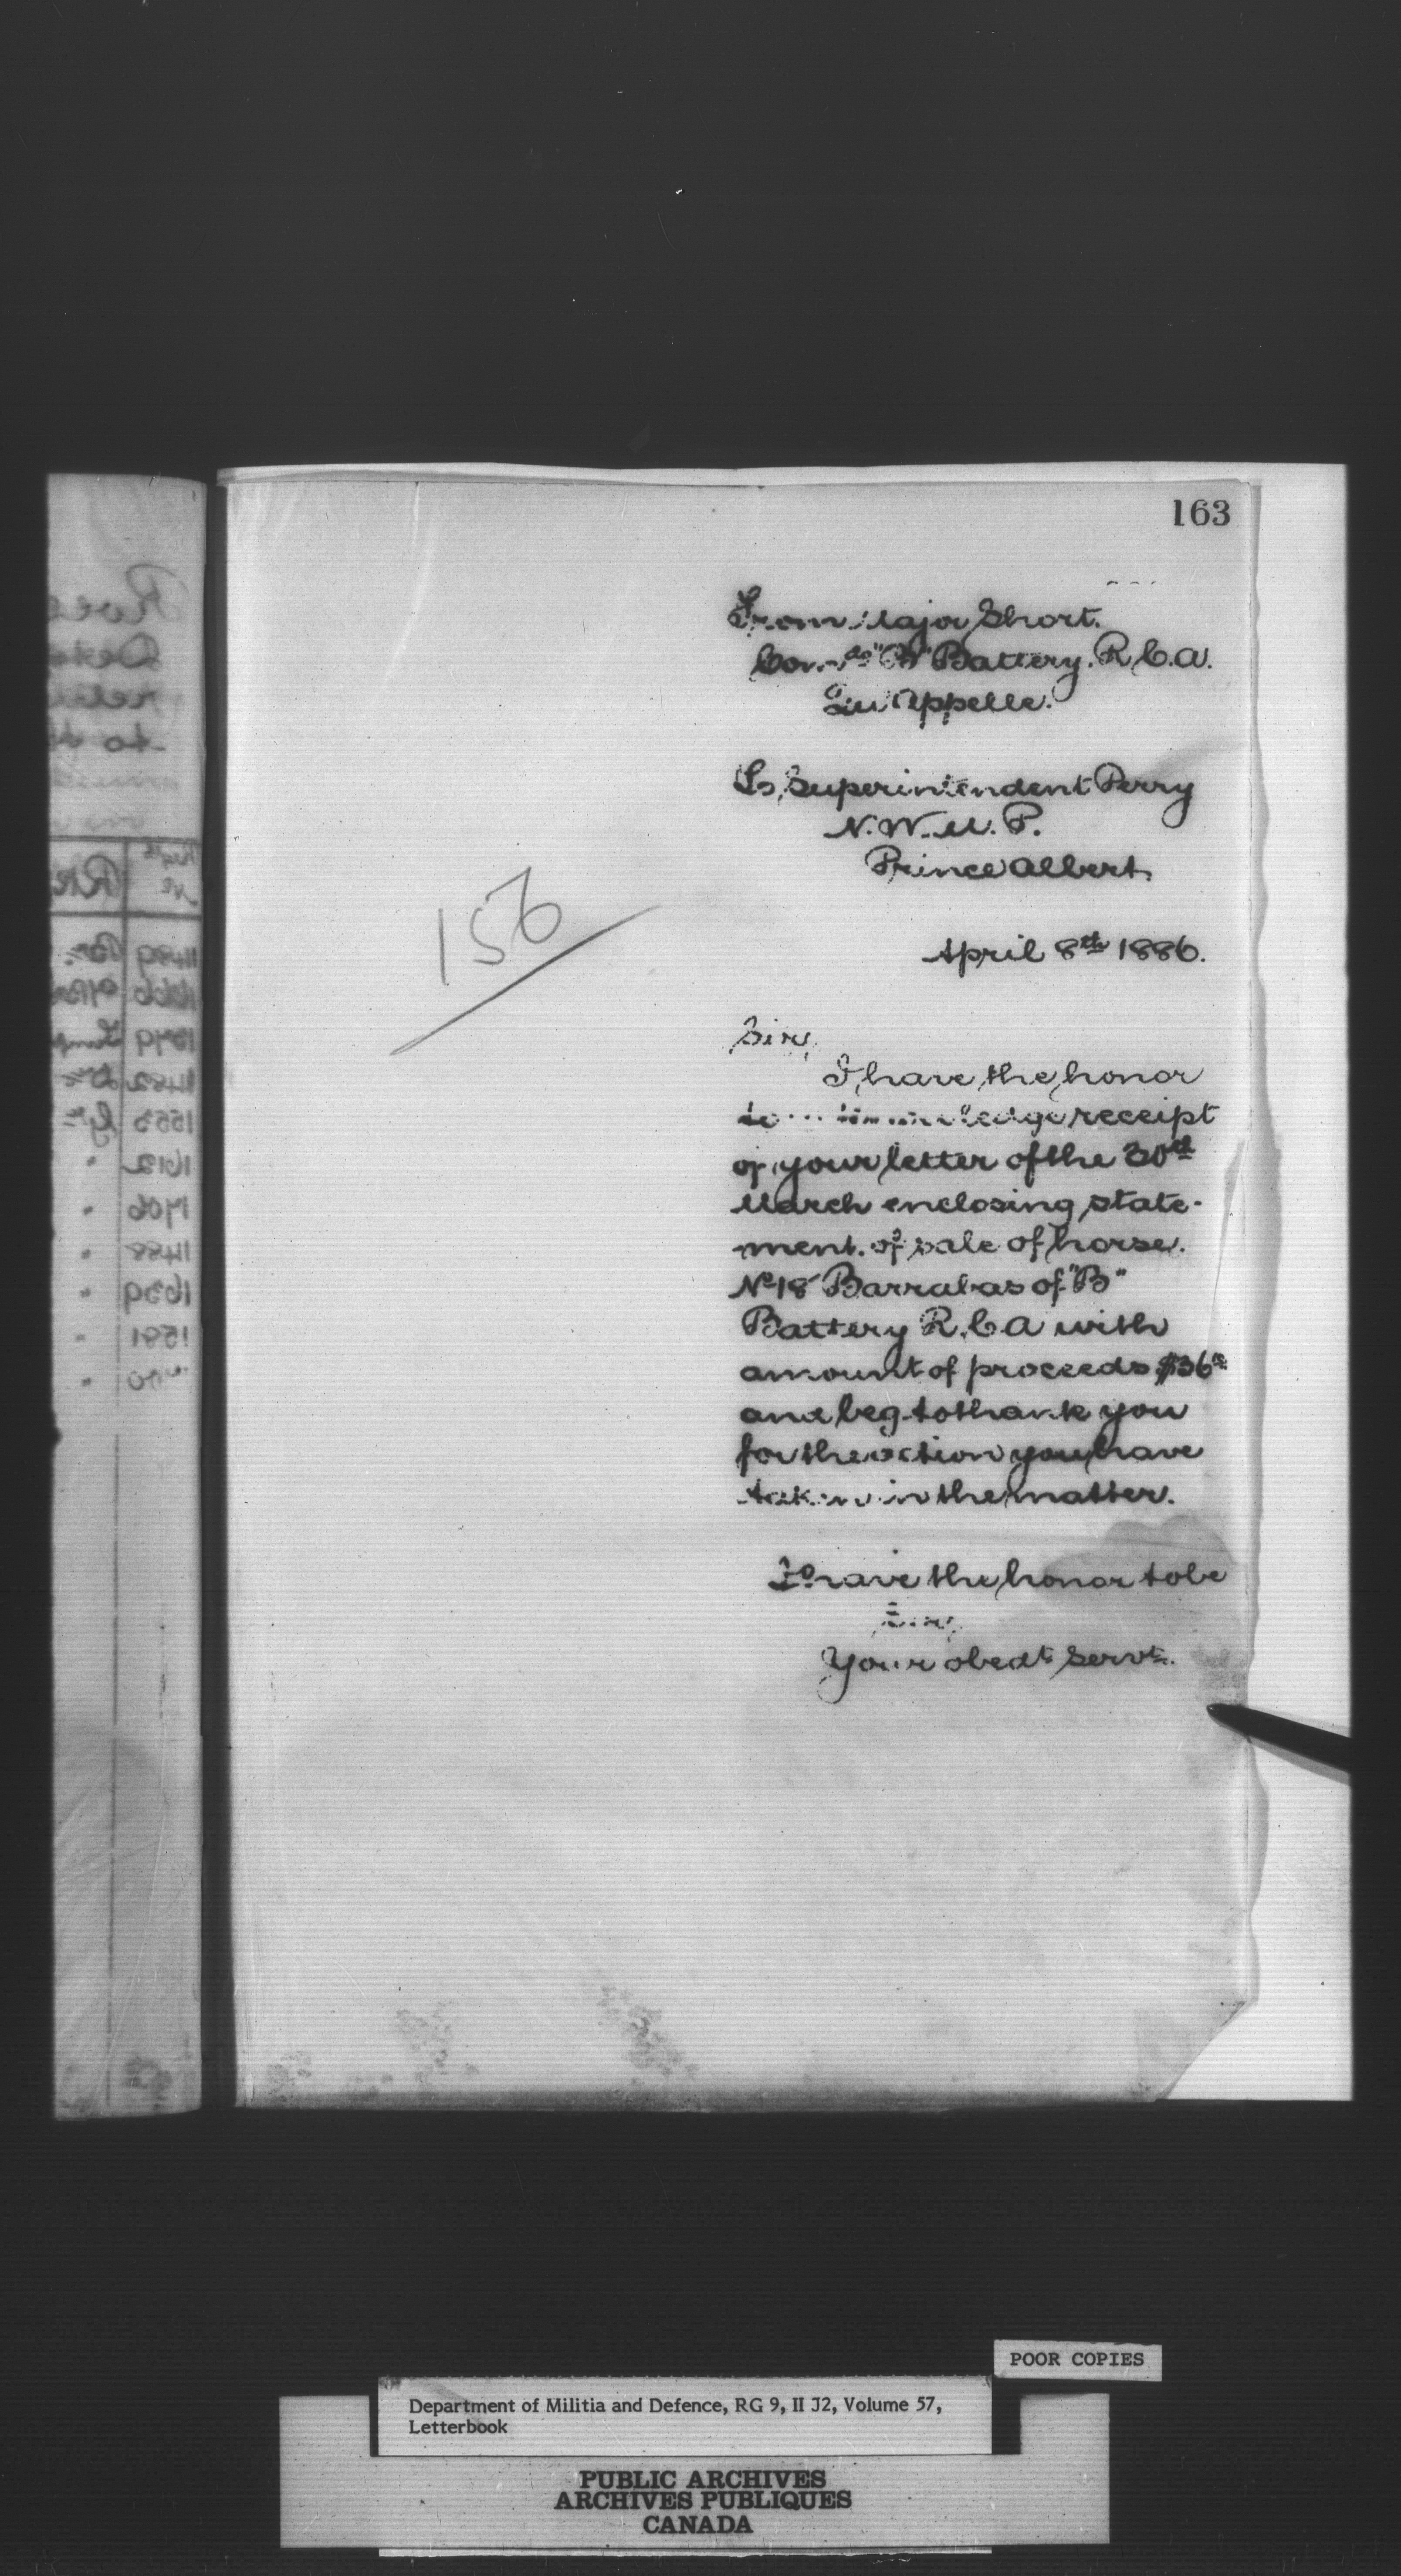 163
From Major Short.
Comdg "B" Battery. R.C.A.
Qu'Appelle.
To Superintendent Perry
N.W.M.P.
Prince Albert.
156
April 8th 1886.
Sir,
I have the honor
to acknowledge receipt
of your letter of the 30th
March enclosing state-
ment. of sale of horse.
No 18 Barrabas of "B"
Battery R.C.A with
amount of proceeds $36
and beg to thank you
for the action you have
taken in the matter.
I have the honor to be
Sir,
Your obedt servt.
POOR COPIES
Department of Militia and Defence, RG 9, II J2, Volume 57,
Letterbook
PUBLIC ARCHIVES
ARCHIVES PUBLIQUES
CANADA